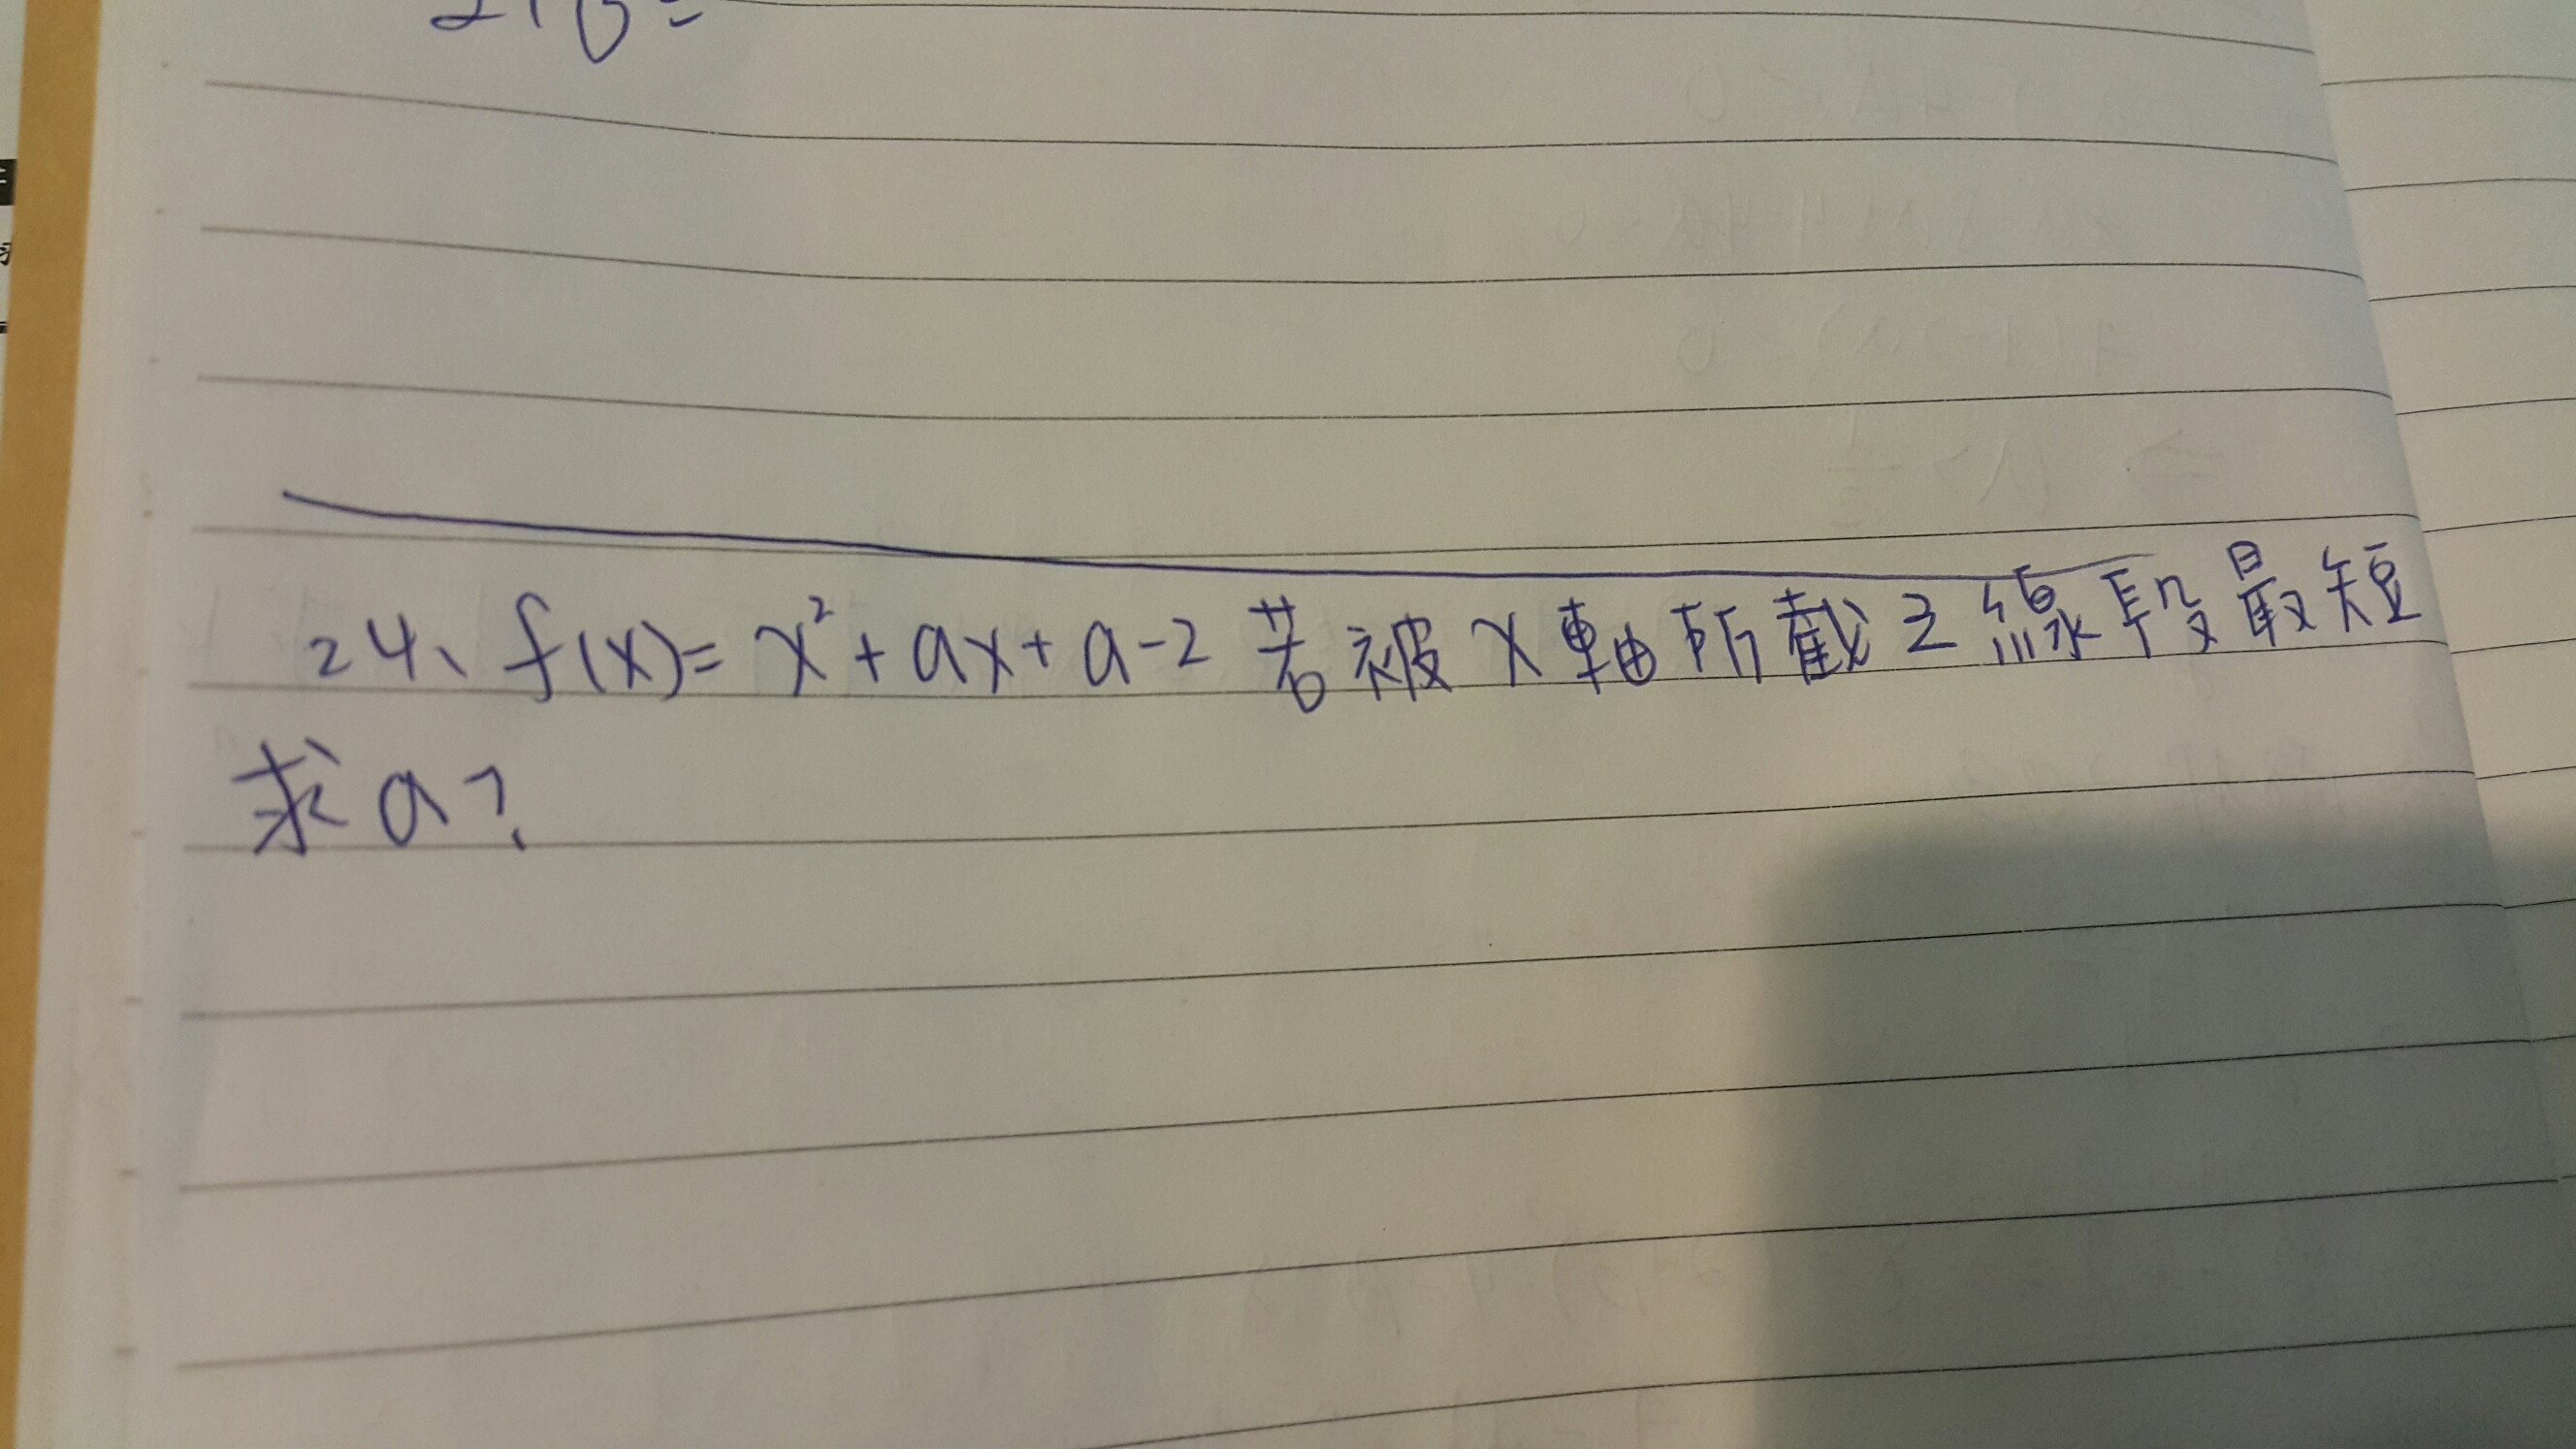 24、f(x)= x²+ax+a-2 若被x軸所截之線段最短
求a?